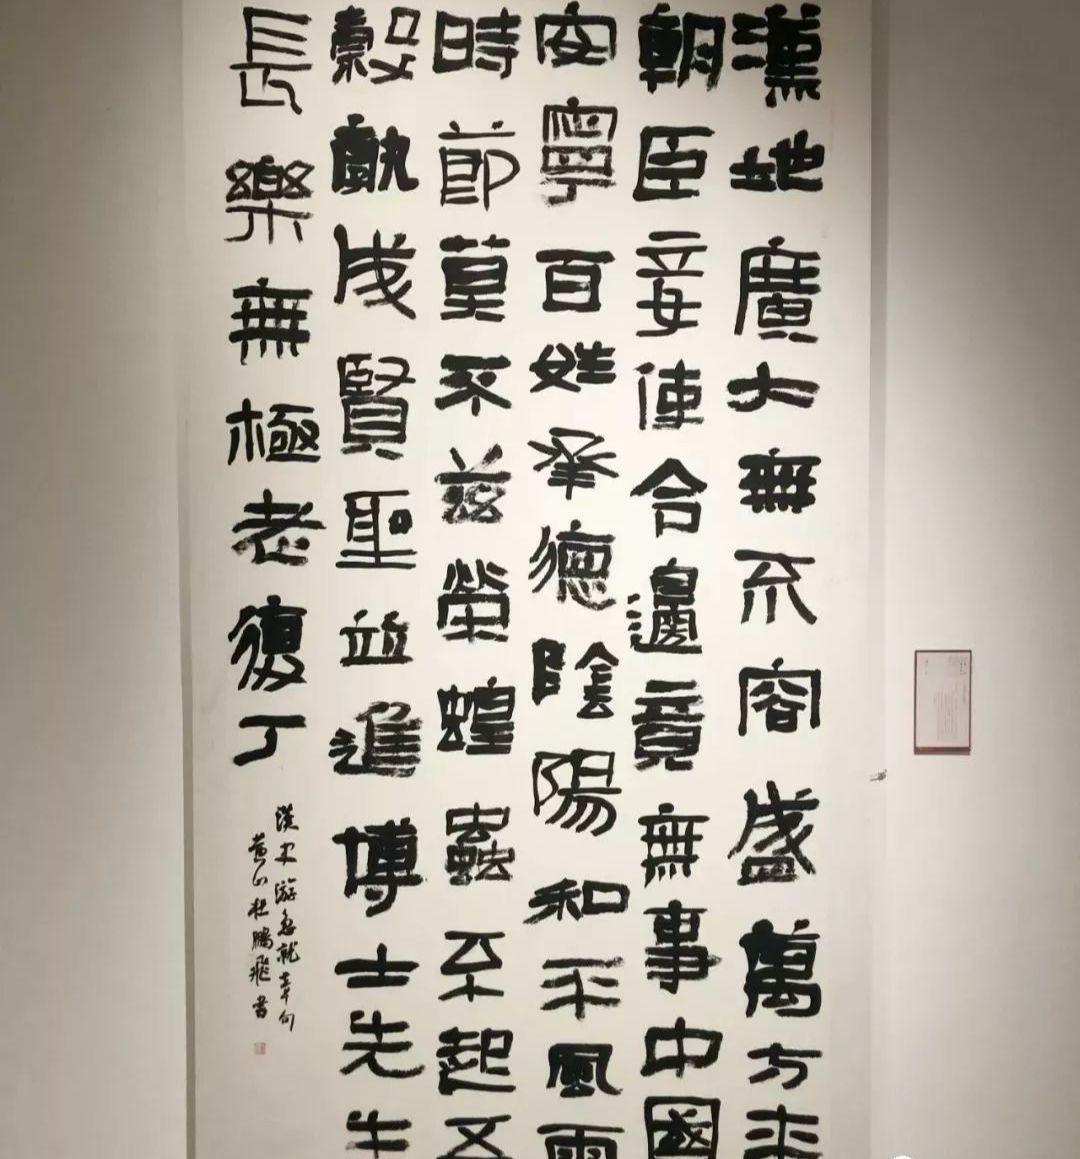 漢地廣大無不容盛萬方来
朝臣妾使令邊竟無事中國
安寧百姓承德陰陽和平風雨
時節莫不兹榮蝗蟲不起五
穀孰成賢聖並進博士先生
長樂無極老復丁
漢史游急就章句
黄山杜鵬飛書